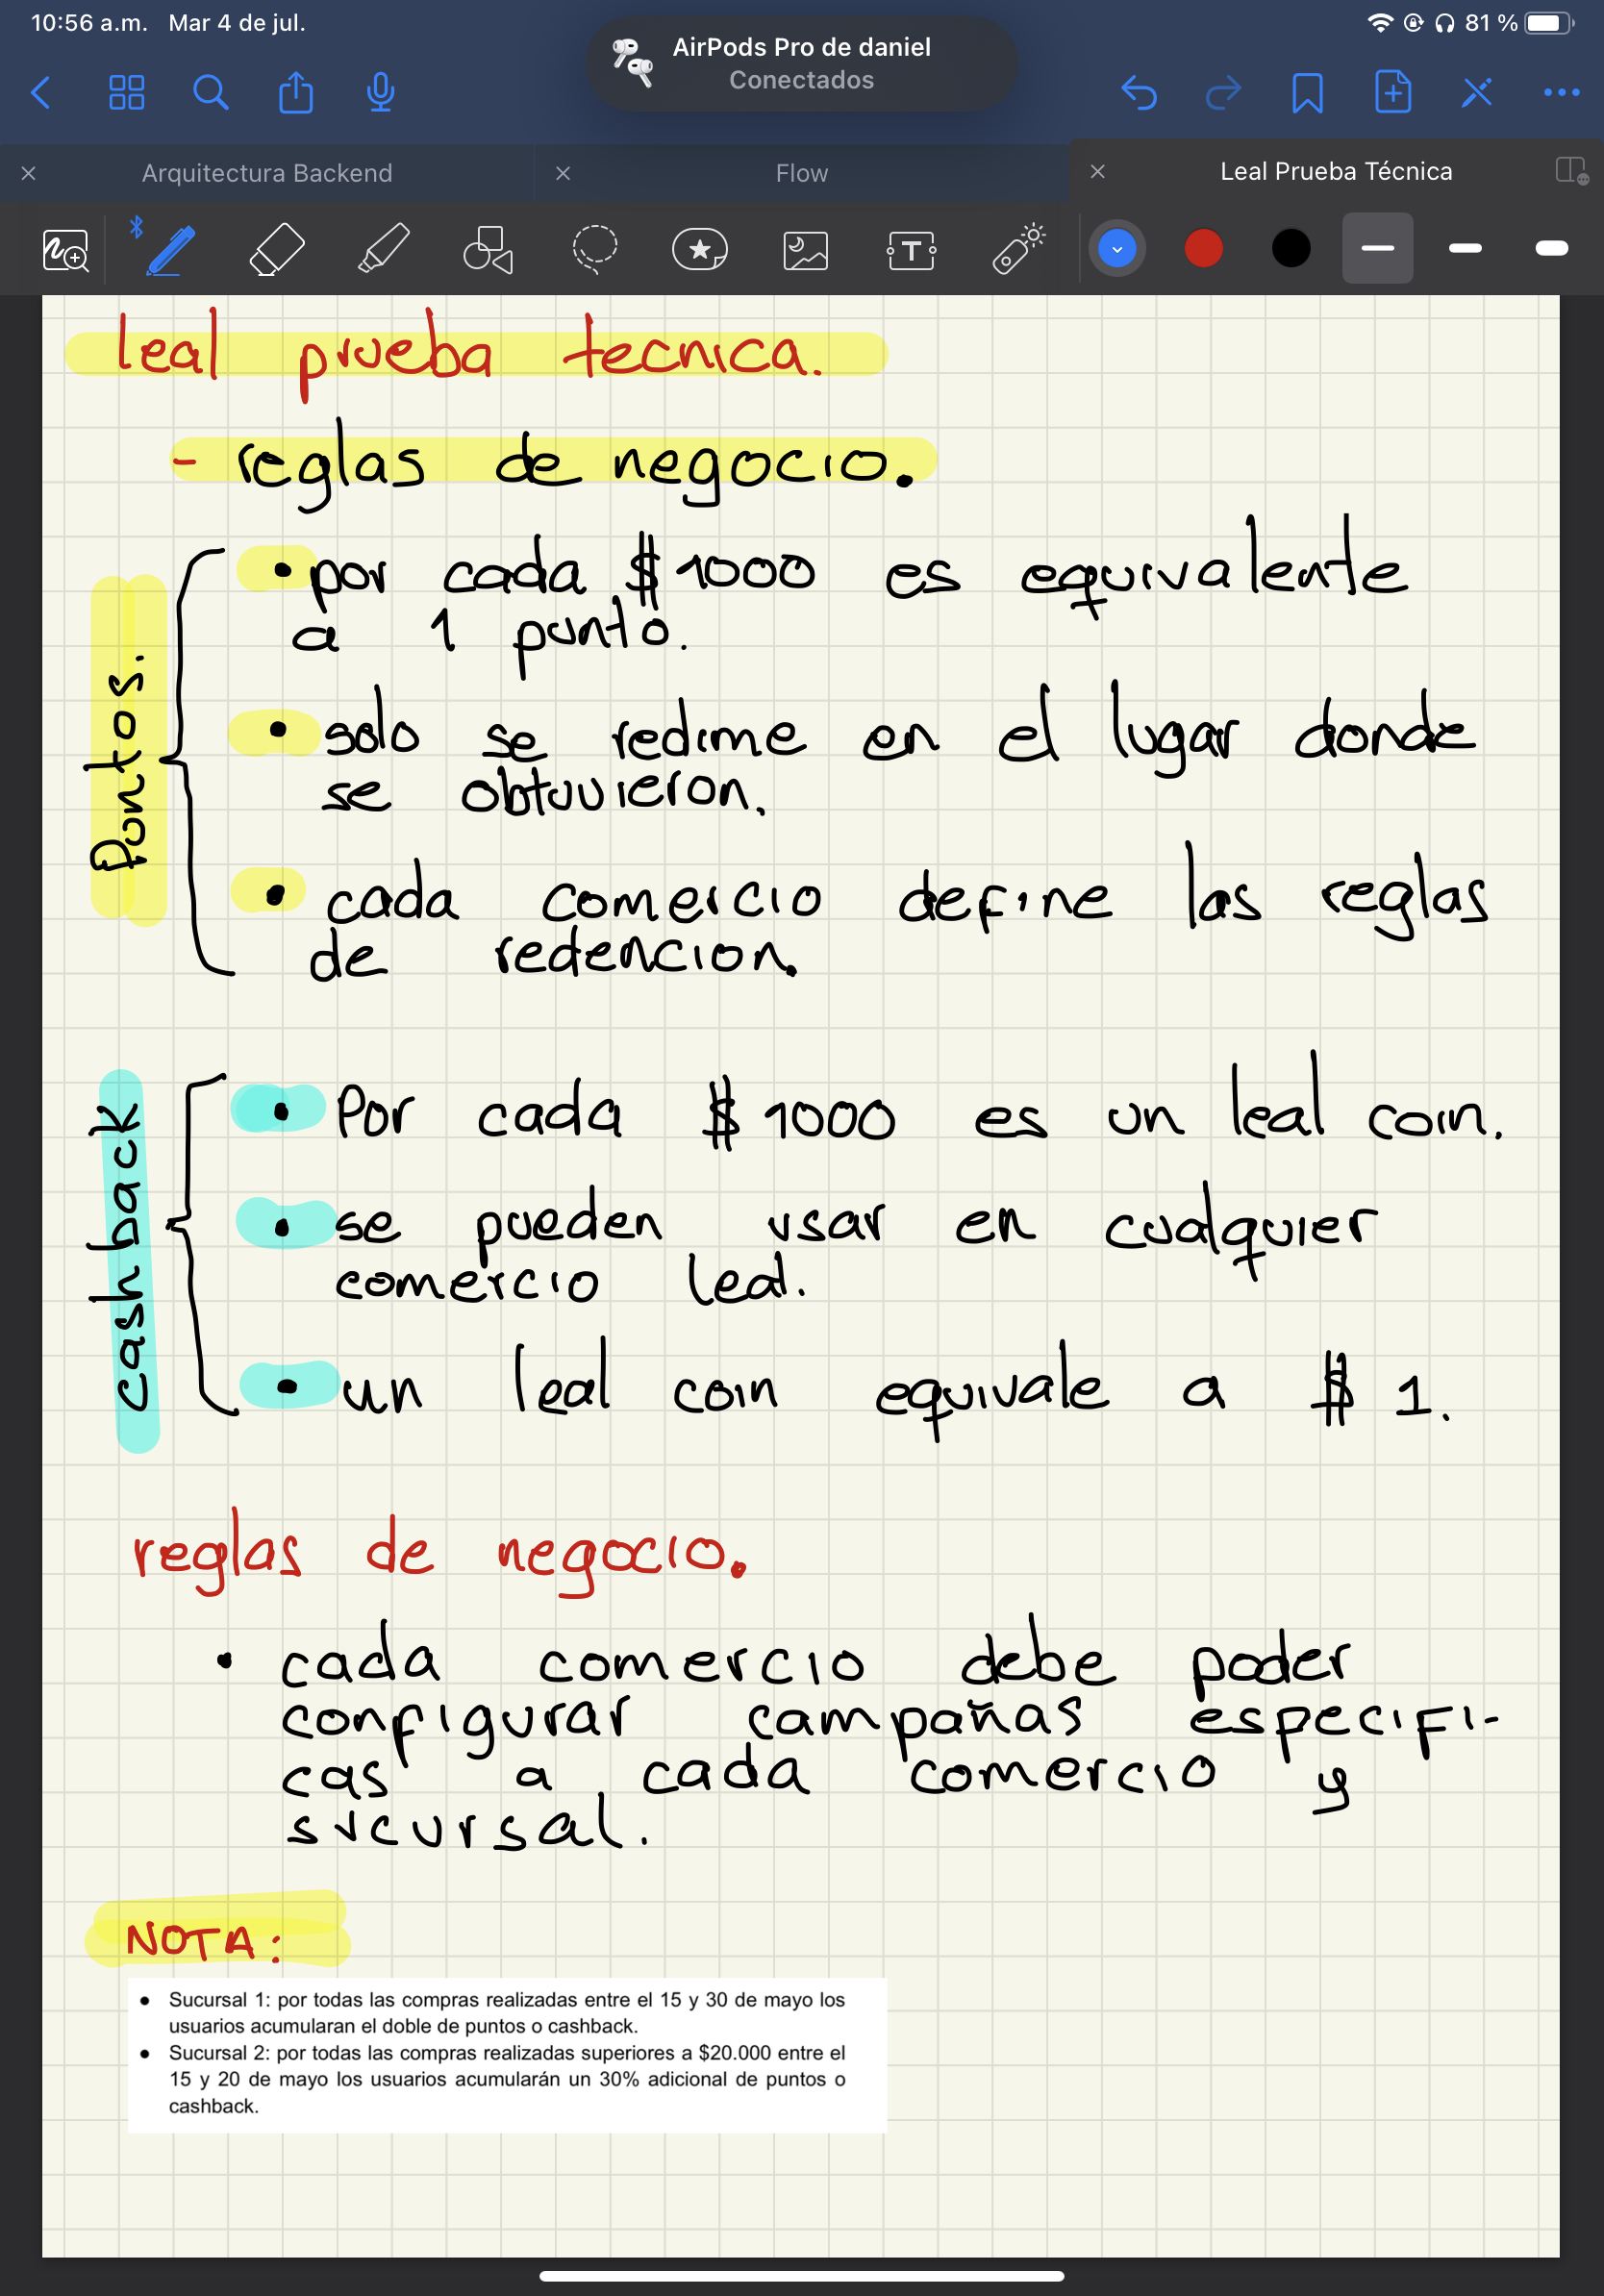 10:56 a.m. Mar 4 de jul.
81 %
AirPods Pro de daniel
Conectados
Arquitectura Backend
Flow
Leal Prueba Técnica
leal prueba tecnica.
- reglas de negocio.
Puntos.
• por cada $1000 es equivalente
a 1 punto.
• solo se redime en el lugar donde
se obtuvieron.
• cada comercio define las reglas
de redencion.
cashback
• Por cada $1000 es un leal coin.
• se pueden usar en cualquier
comercio leal.
• un leal coin equivale a $1.
reglas de negocio.
• cada comercio debe poder
configurar campañas especifi-
cas a cada comercio y
sucursal.
NOTA:
● Sucursal 1: por todas las compras realizadas entre el 15 y 30 de mayo los
usuarios acumularan el doble de puntos o cashback.
● Sucursal 2: por todas las compras realizadas superiores a $20.000 entre el
15 y 20 de mayo los usuarios acumularán un 30% adicional de puntos o
cashback.